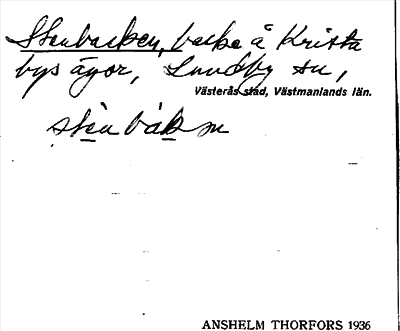 Stenbacken, backe å Krista
bys ägor, Lundby sn,
Västerås stad, Västmanlands län.
stèn bàk m
ANSHELM THORFORS 1936